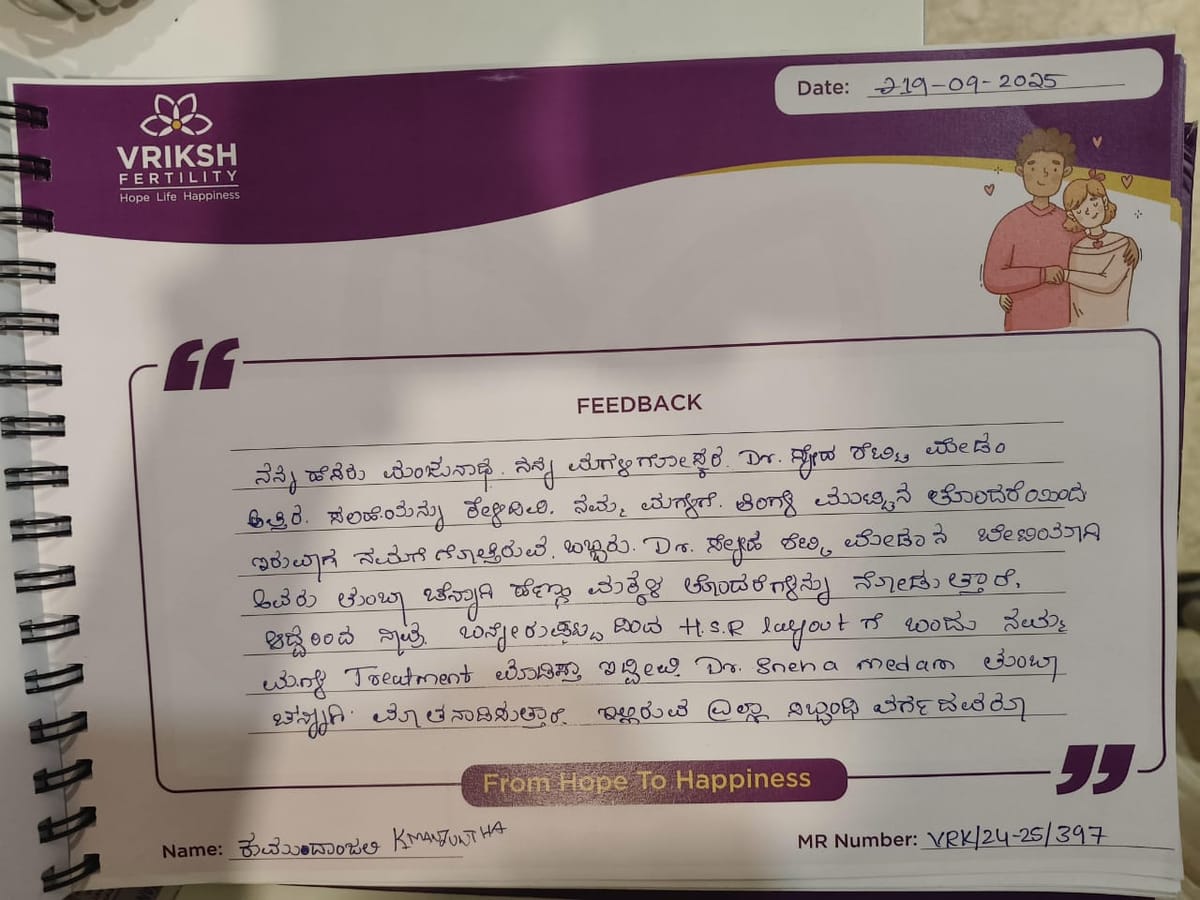 Date: 219-09-2025
VRIKSH
FERTILITY
Hope Life Happiness
FEEDBACK
ನನ್ನ ಹೆಸರು ಮಂಜುನಾಥ. ನನ್ನ ಮಗಳಿಗೋಸ್ಕರ. Dr. ಸ್ನೇಹ ಶೆಟ್ಟಿ ಮೇಡಂ
ಹತ್ತಿರ. ಸಲಹೆಯನ್ನು ಕೇಳಿದಿವಿ. ನಮ್ಮ ಮಗಳಿಗೆ. ತಿಂಗಳ ಮುಟ್ಟಿನ ತೊಂದರೆಯಿಂದ
ಇರುವಾಗ ನಮಗೆ ಗೊತ್ತಿರುವ. ಒಬ್ಬರು. Dr. ಸ್ನೇಹ ಶೆಟ್ಟಿ ಮೇಡಂನ ಬೇಟಿಯಾಗಿ
ಅವರು ತುಂಬಾ ಚೆನ್ನಾಗಿ ಹೆಣ್ಣು ಮಕ್ಕಳ ತೊಂದರೆಗಳನ್ನು ನೋಡುತ್ತಾರೆ.
ಆದ್ದರಿಂದ ನಾವು. ಬನ್ನೇರುಘಟ್ಟ ದಿಂದ H.S.R layout ಗೆ ಬಂದು ನಮ್ಮ
ಮಗಳ Treatment ಮಾಡಿಸ್ತಾ ಇದ್ದೀವಿ. Dr. Sneha medam ತುಂಬಾ
ಚನ್ನಾಗಿ. ಮಾತನಾಡಿಸುತ್ತಾರೆ. ಇಲ್ಲಿರುವ ಎಲ್ಲಾ ಸಿಬ್ಬಂಧಿ ವರ್ಗದವರೂ
From Hope To Happiness
Name: KMANJUNTHA
MR Number: VRK/24-25/397